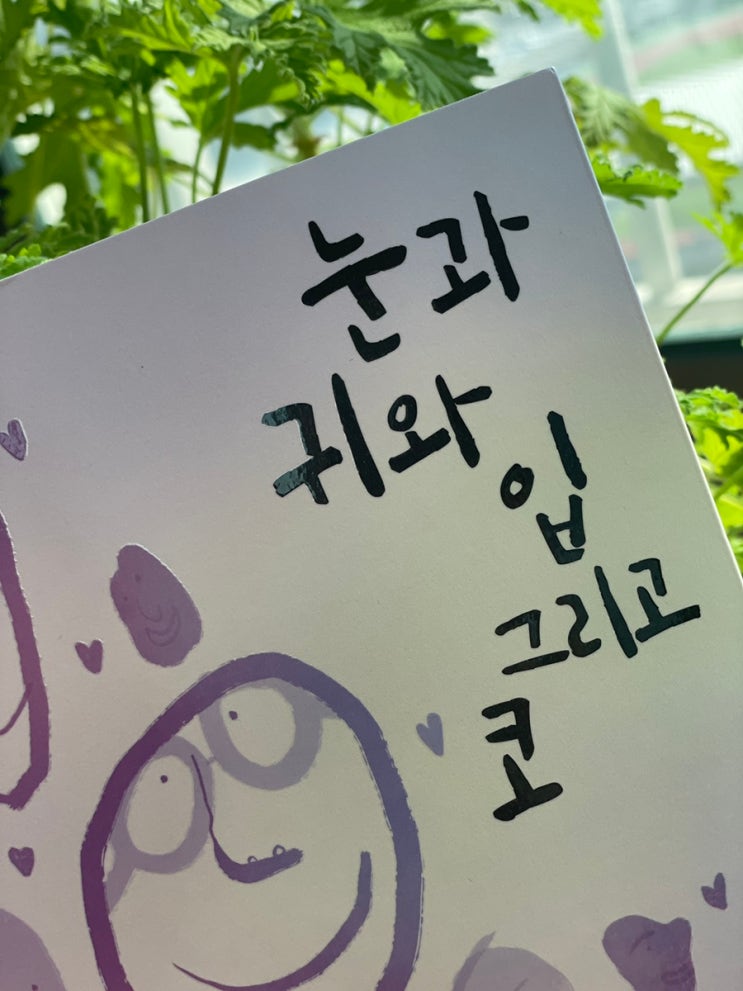 눈과
귀와
입
그리고
코